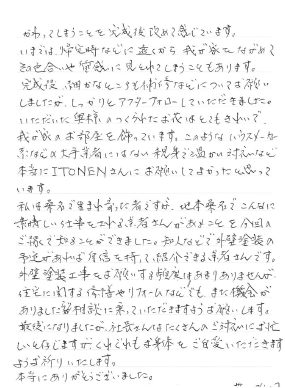 かわってしまうことを完成後改めて感じています。
いまでは、帰宅時などに遠くから我が家をながめて
色合いや質感に見とれてしまうこともあります。
完成後、細かなところも补修などについてお願い
しましたが、しっかりとアフターフォローしていただきました。
いただいた奥様のつくられたお花はとてもきれいで、
我が家のお部屋を飾っています。このようなハウスメーカー
系などの大手業者にはない親身で温かい対応など
本当にITONENさんにお願いしてよかったと思って
います。
私は桑名で生まれ育った者ですが、地元桑名でこんなに
素晴しい仕事をされる業者さんがあることを今回の
ご縁で知ることができました。知人などで外壁塗装の
予定があれば自信を持って紹介できる業者さんです。
外壁塗装工事をお願いする頻度はあまりありませんが、
住宅に関する修善やリフォームなどでも、また機会が
ありましたら相談に乗っていただきますようお願いします。
最後になりましたが、社長さんはたくさんのご対応にお忙し
いと存じますが、くれぐれもお身体をご自愛いただきます
ようお祈りいたします。
本当にありがとうございました。